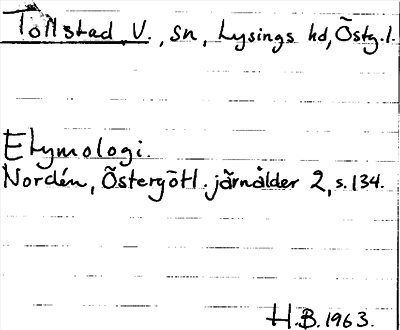 Tollstad, V., sn, Lysings hd, Östg.l.
Etymologi.
Nordén, Östergötl. järnålder 2, s. 134.
H.B. 1963.